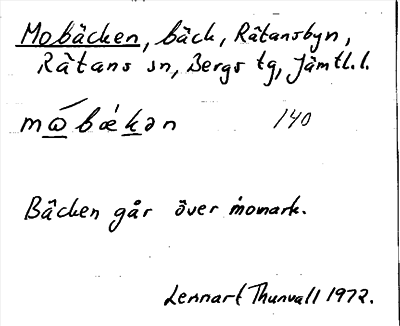 Mobäcken, bäck, Rätansbyn,
Rätans sn, Bergs tg, Jämtl.l.
mώ̲bǽk̲ən 140
Bäcken går över momark.
Lennart Thunvall 1972.